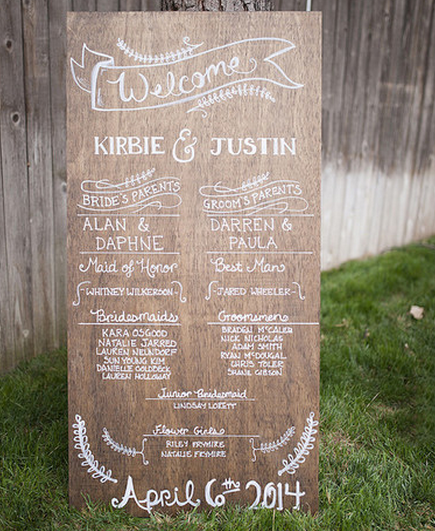 Welcome
KIRBIE & JUSTIN
BRIDE'S PARENTS
ALAN &
DAPHNE
GROOM'S PARENTS
DARREN &
PAULA
Maid of Honor
WHITNEY WILKERSON
Best Man
JARED WHEELER
Bridesmaids
KARA OSGOOD
NATALIE JARRED
LAUREN NEUNDORF
SUN YOUNG KIM
DANIELLE GOLDBECK
LAUREN HOLLOWAY
Groomsmen
BRADEN McCALEB
NICK NICHOLAS
ADAM SMITH
RYAN McDOUGAL
CHRIS TOLER
SHANE GIBSON
Junior Bridesmaid
LINDSAY LOVETT
Flower Girls
RILEY FRYMIRE
NATALIE FRYMIRE
April 6th 2014